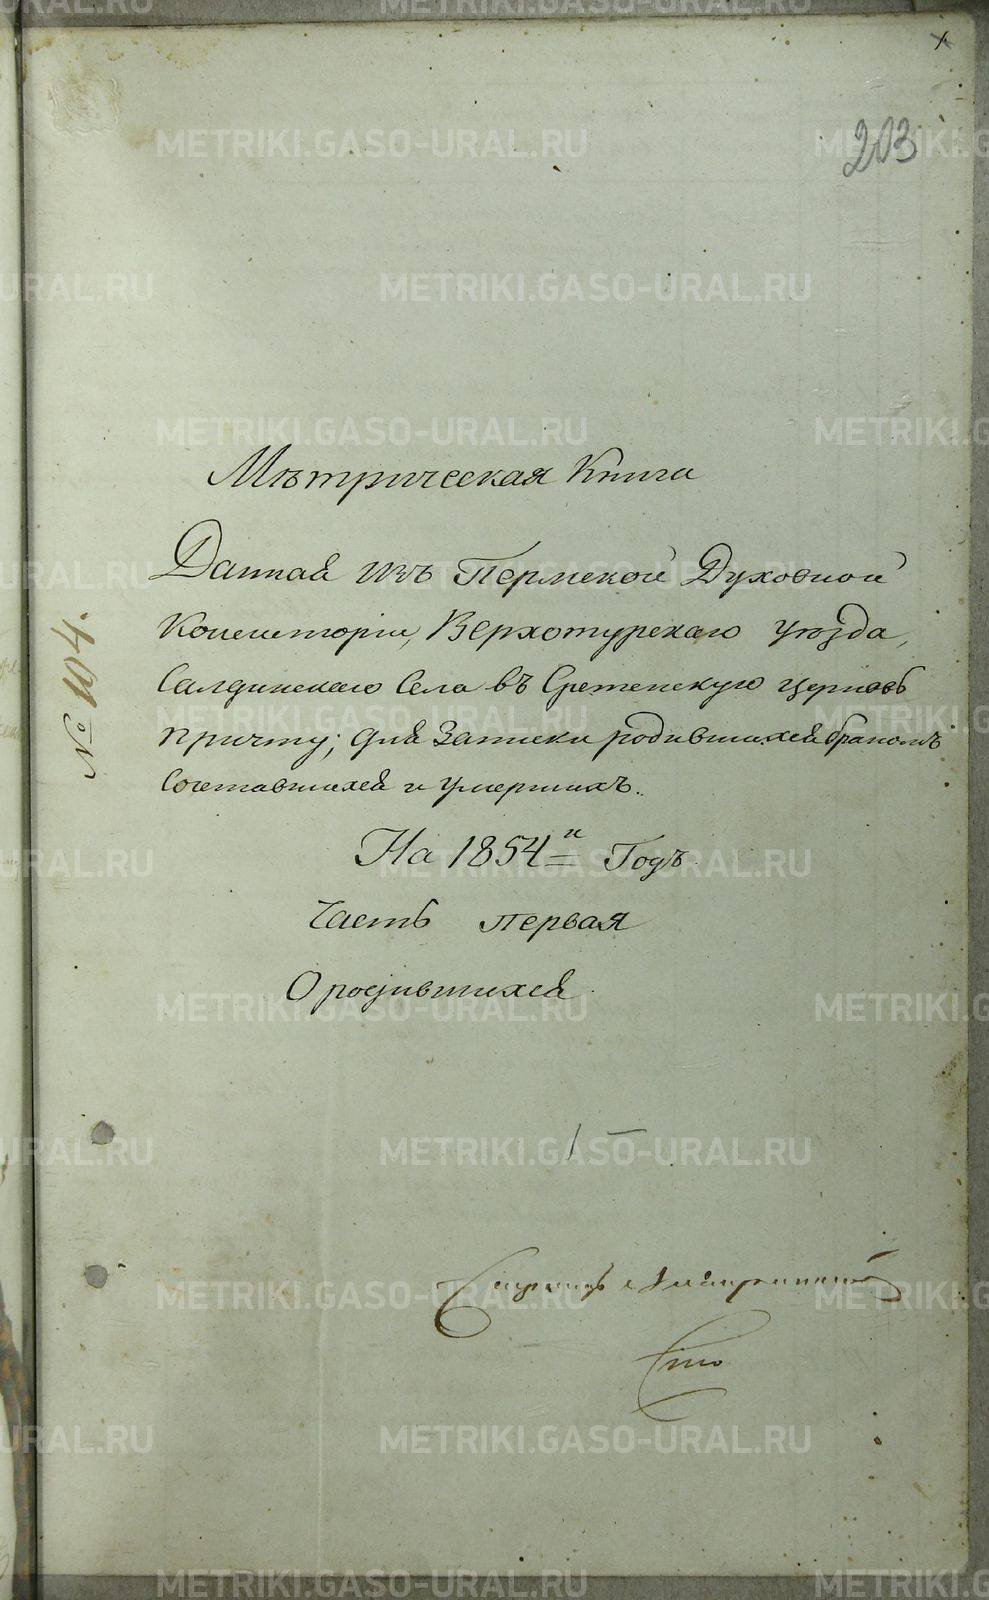 203
Мѣтрическая Книга
Данная изъ Пермской Духовной
Консисторіи, Верхотурскаго уѣзда,
Салдинскаго Села въ Сретенскую церковь
причту; для Записки родившихся бракомъ
Сочетавшихся и умершихъ.
№ 104.
На 1854 й Годъ
Часть первая
О родившихся.
METRIKI.GASO-URAL.RU